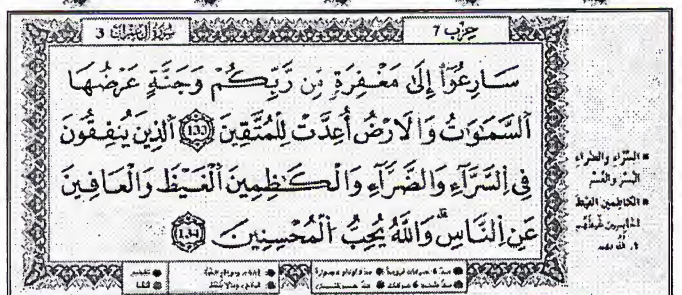 سُورَةُ آلِ عِمْرَان 3
حِزْب 7
سَارِعُوٓاْ إِلَىٰ مَغْفِرَةٍ مِّن رَّبِّكُمْ وَجَنَّةٍ عَرْضُهَا
اَ۬لسَّمَٰوَٰتُ وَالَارْضُ أُعِدَّتْ لِلْمُتَّقِينَ 133 اَ۬لذِينَ يُنفِقُونَ
فِي اِ۬لسَّرَّآءِ وَالضَّرَّآءِ وَالْكَٰظِمِينَ اَ۬لْغَيْظَ وَالْعَافِينَ
عَنِ اِ۬لنَّاسِ وَاللَّهُ يُحِبُّ اُ۬لْمُحْسِنِينَ 134
السَّرَّاء والضَّرَّاء
اليُسْر والعُسْر
الكاظمين الغيظ
الحابسين غيظهم